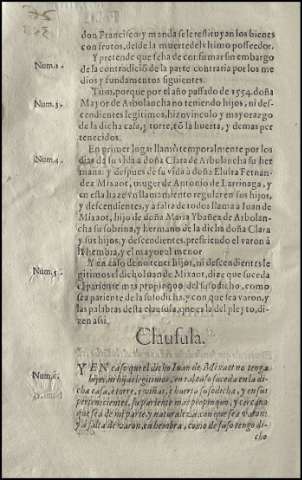 don Francisco, y manda se le restituyan los bienes
con frutos, desde la muerte del vltimo posseedor.
Num. 2. Y pretende que se ha de confirmar sin embargo
de la contradicion de la parte contraria por los me
dios y fundamentos siguientes.
Num. 3. porque por el año passado de 1554. doña
Mayor de Arbolancha no teniendo hijos, ni des-
cendientes legitimos, hizo vinculo y mayorazgo
de la dicha casa, y torre, con la huerta, y demas per
tenecidos.
Num. 4. En primer lugar llamò temporalmente por los
dias de su vida à doña Clara de Arbolancha su her
mana: y despues de su vida à doña Eluira Fernan-
dez Mixaot, muger de Antonio de Larrinaga, y
en esta haze vn llamamiento regular en sus hijos,
y descendientes, y à falta de todos llama a Iuan de
Mixaot, hijo de doña Maria Ybañez de Arbolan-
cha su sobrina, y hermano de la dicha doña Clara
y sus hijos, y descendientes, prefiriendo el varon à
la hembra, y el mayor al menor
Num. 5. Y en caso de no tener hijos, ni descendientes le
gitimos el dicho Iuan de Mixaot, dize que suceda
el pariente mas propinquo del susodicho, como
sea pariente de la susodicha, y con que sea varon, y
las palabras desta clausula, que es la del pleyto, di-
zen assi,
Clausula.
Num. 6. Y EN caso que el dicho Iuan de Mixaot no tenga
hijos, ni hijas legitimos, en tal caso suceda en la di-
cha casa, è torre, y viñas, è huerta susodicha, y en sus
pertenecientes, su pariente mas propinquo, y cercano
que sea de mi parte, y naturaleza, con que sea varon
y à falta de varon, en hembra, como de suso tengo di-
cho